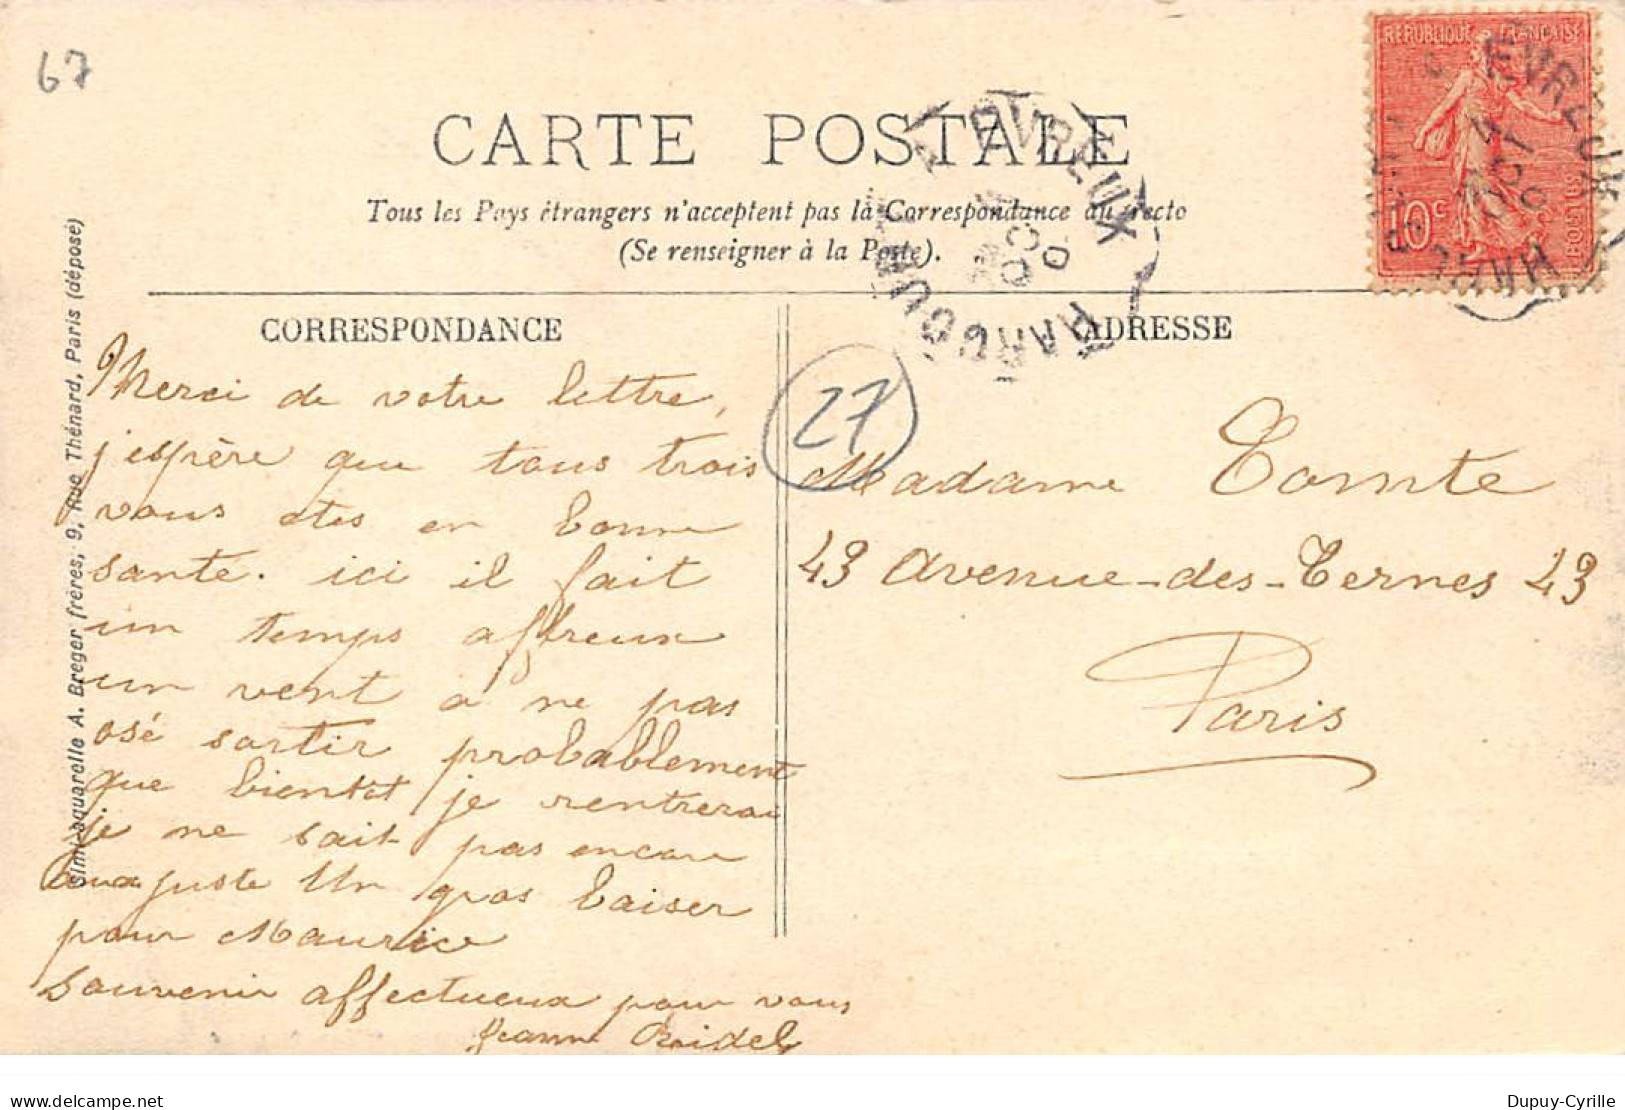 67
RÉPUBLIQUE FRANÇAISE
10c
POSTES
EVREUX
CARTE POSTALE
EVREUX
Tous les Pays étrangers n'acceptent pas la Correspondance au recto
(Se renseigner à la Poste).
Simili-aquarelle A. Breger frères, 9, Rue Thénard, Paris (déposé)
CORRESPONDANCE
Merci de votre lettre,
j'espère que tous trois
vous etes en bonne
santé. ici il fait
un temps affreux
un vent a ne pas
osé sortir probablement
que bientot je rentrerai
je ne sait pas encore
juste Un gros baiser
pour Maurice
Souvenir affectueux pour vous
Jeanne
ADRESSE
27
Madame Comte
43 Avenue-des-Ternes 43
Paris
delcampe.net
Dupuy-Cyrille